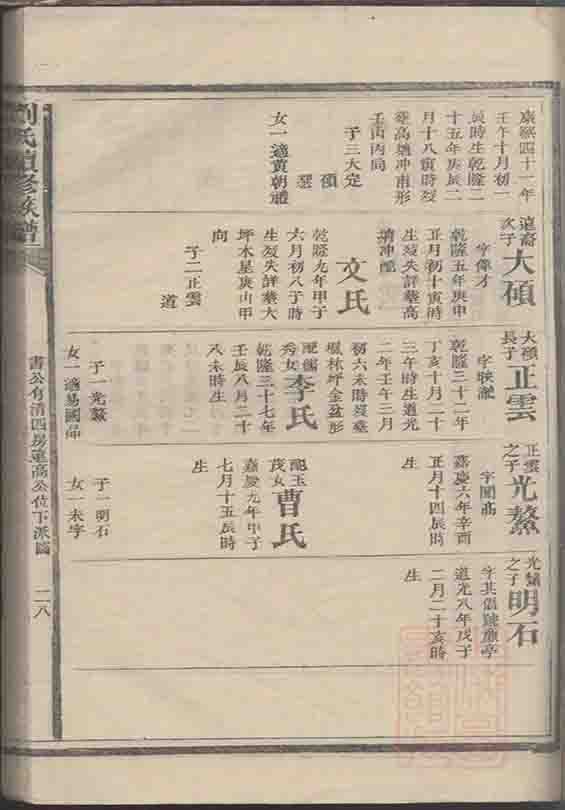 康熙四十一年
壬午十月初一
辰時生乾隆二
十五年庚辰二
月十八寅時歿
葬高塘冲甫形
壬山丙向
子三大定
碩
女一適黄朝禮
遠裔次子
大碩
字偉才
乾隆五年庚申
正月初十寅時
生歿失詳葬高
塘冲
文氏
乾隆九年甲子
六月初八子時
生歿失詳葬大
坪木星庚山甲
向
子二正雲
道
大碩長子
正雲
字映
乾隆三十二年
丁亥十月二十
三午時生道光
二年壬午三月
初六未時歿葬
楓林坪金盆形
配儒秀女
李氏
乾隆三十七年
壬辰八月二十
八未時生
子一光鰲
女一適易國品
正雲之子
光鰲
字聞高
嘉慶六年辛酉
正月十四辰時
生
配玉茂女
曹氏
嘉慶九年甲子
七月十五辰時
生
子一明石
女一未字
光鰲之子
明石
字其倡號亭
道光八年戊子
二月二十亥時
生
劉氏續修族譜
書公有清四房遠高公位下派圖
二八